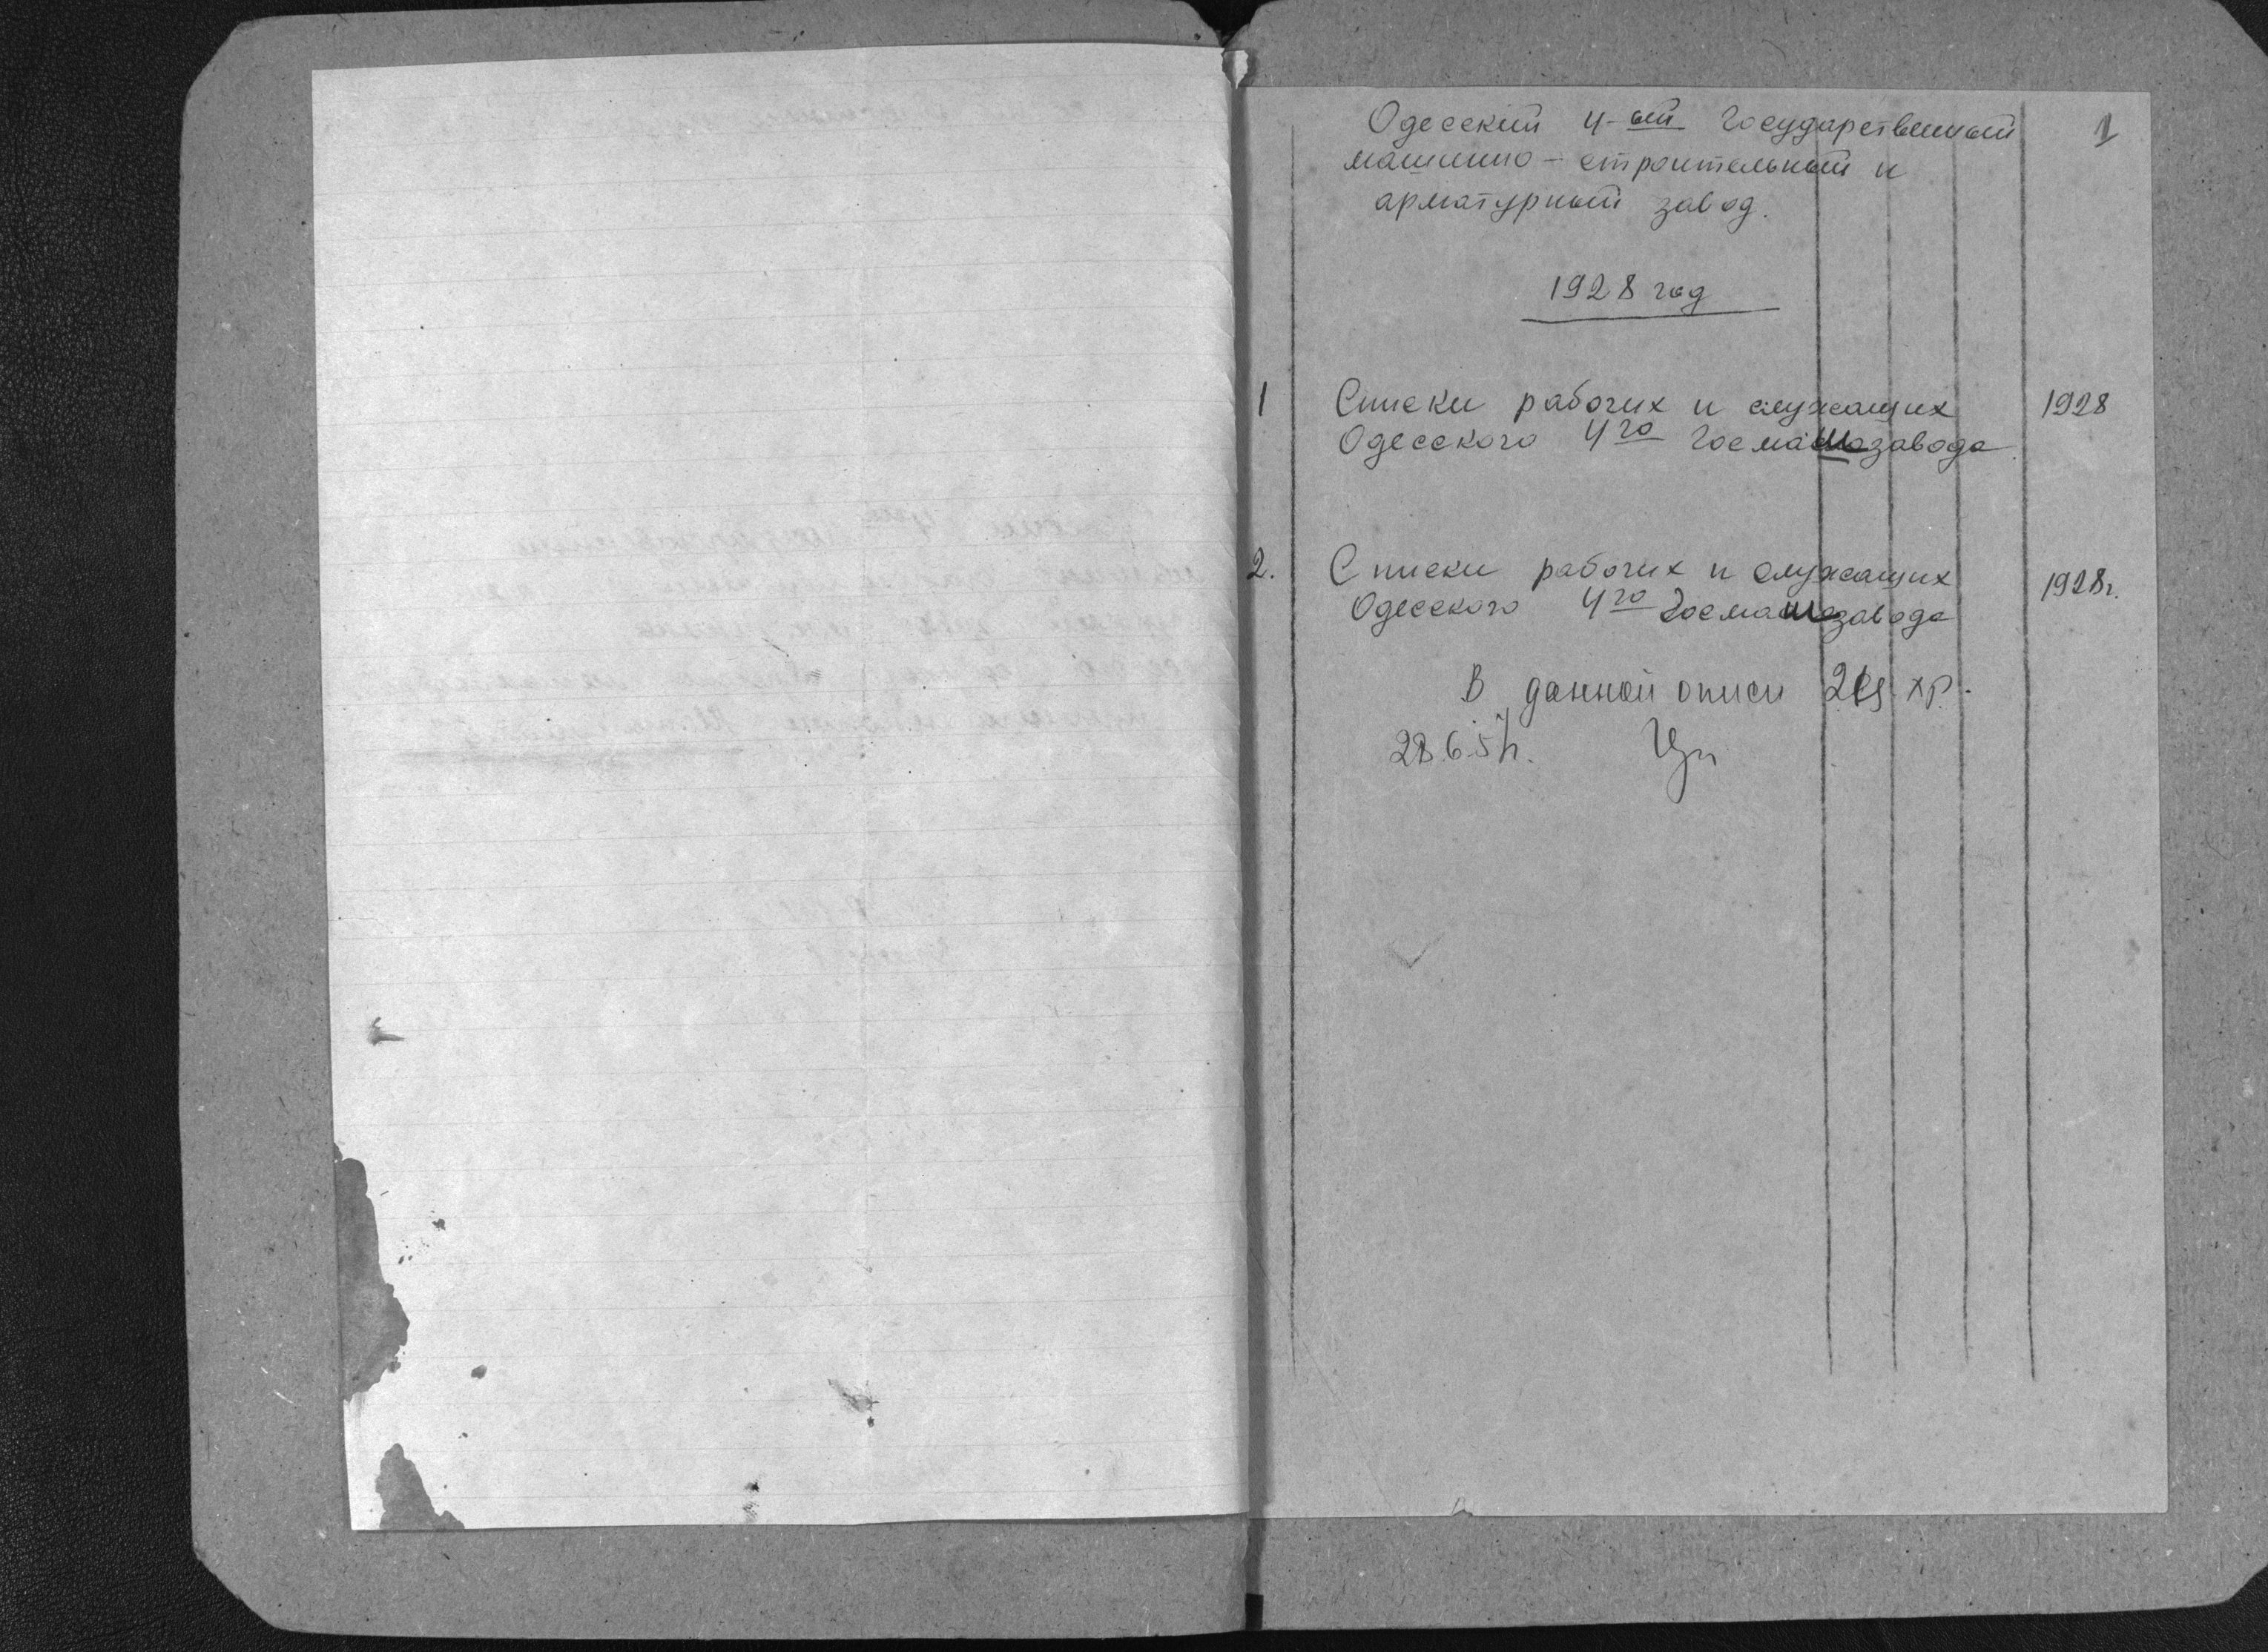 1
Одесский 4-ый Государственный
машинно-строительный и
арматурный завод.
1928 год
1 Списки рабочих и служащих 1928
Одесского 4го Госмашзавода.
2. Списки рабочих и служащих 1928г.
Одесского 4го Госмашзавода
В данной описи 2 хр.
28.6.